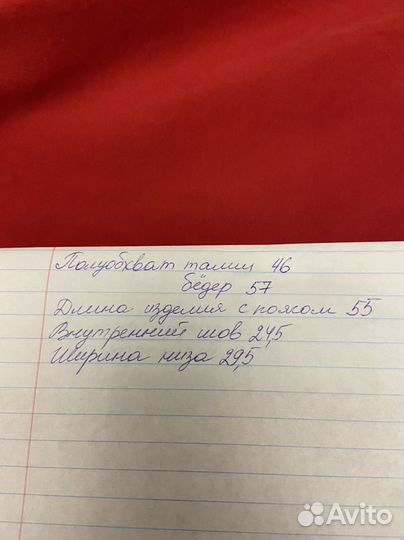 Полуобхват талии 46
бёдер 57
Длина изделия с поясом 55
Внутренний шов 24,5
Ширина низа 29,5
Avito